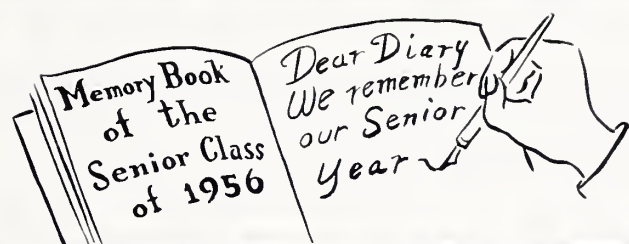 Memory Book
of the
Senior Class
of 1956
Dear Diary
We remember
our Senior
year